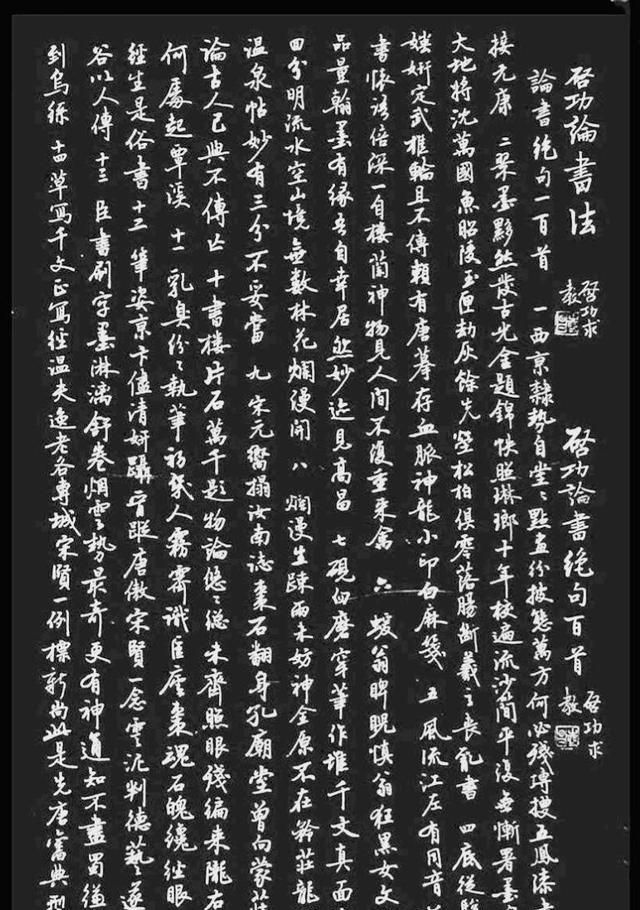 启功論書法
启功求教
启功論書絕句百首
启功求教
論書絕句一百首 一 西京隸勢自堂〻 點畫紛披態萬方 何必殘磚搜五鳳 漆書
接元康 二 翠墨黟然發古光 金題錦帙照琳瑯 十年校遍流沙簡 平復無慚署墨
大地將沈萬國魚 昭陵玉匣劫灰餘 先塋松柏俱零落 腸斷羲之喪亂書 四 底從駿
媸妍定武椎輪且不傳 賴有唐摹存血脈 神龍小印白麻箋 五 風流江左有同音
書悵語倍深 一自樓蘭神物見 人間不復重來禽 六 蝯翁睥睨慎翁狂 黑女文
品量翰墨有緣吾自幸 居然妙迹見高昌 七 硯臼磨穿筆作堆 千文真面
田分明流水空山境 無數林花爛漫開 八 爛漫生疎兩未妨 神全原不在矜莊 龍
温泉帖妙有三分不妥當 九 宋元醫搨汝南誌 棗石翻身孔廟堂 曾向蒙莊
論古人已與不傳亡 十 書樓片石萬千題 物論悠〻總未齊 照眼殘編來隴右
何處起覃溪 十一 乳臭紛〻執筆初 幾人霧霽識匡廬 棗魂石魄纔經眼
經生是俗書 十二 筆姿京卞儘清妍 躡晉蹤唐傲宋賢 一念雲泥判德藝 遂
谷以人傳 十三 臣書刷字墨淋漓 舒卷烟雲勢最奇 更有神通知不盡 蜀縑
到烏絲 十四 草寫千文正寫經 温夫逸老各專城 宋賢一例標新尚 此是先唐舊典型